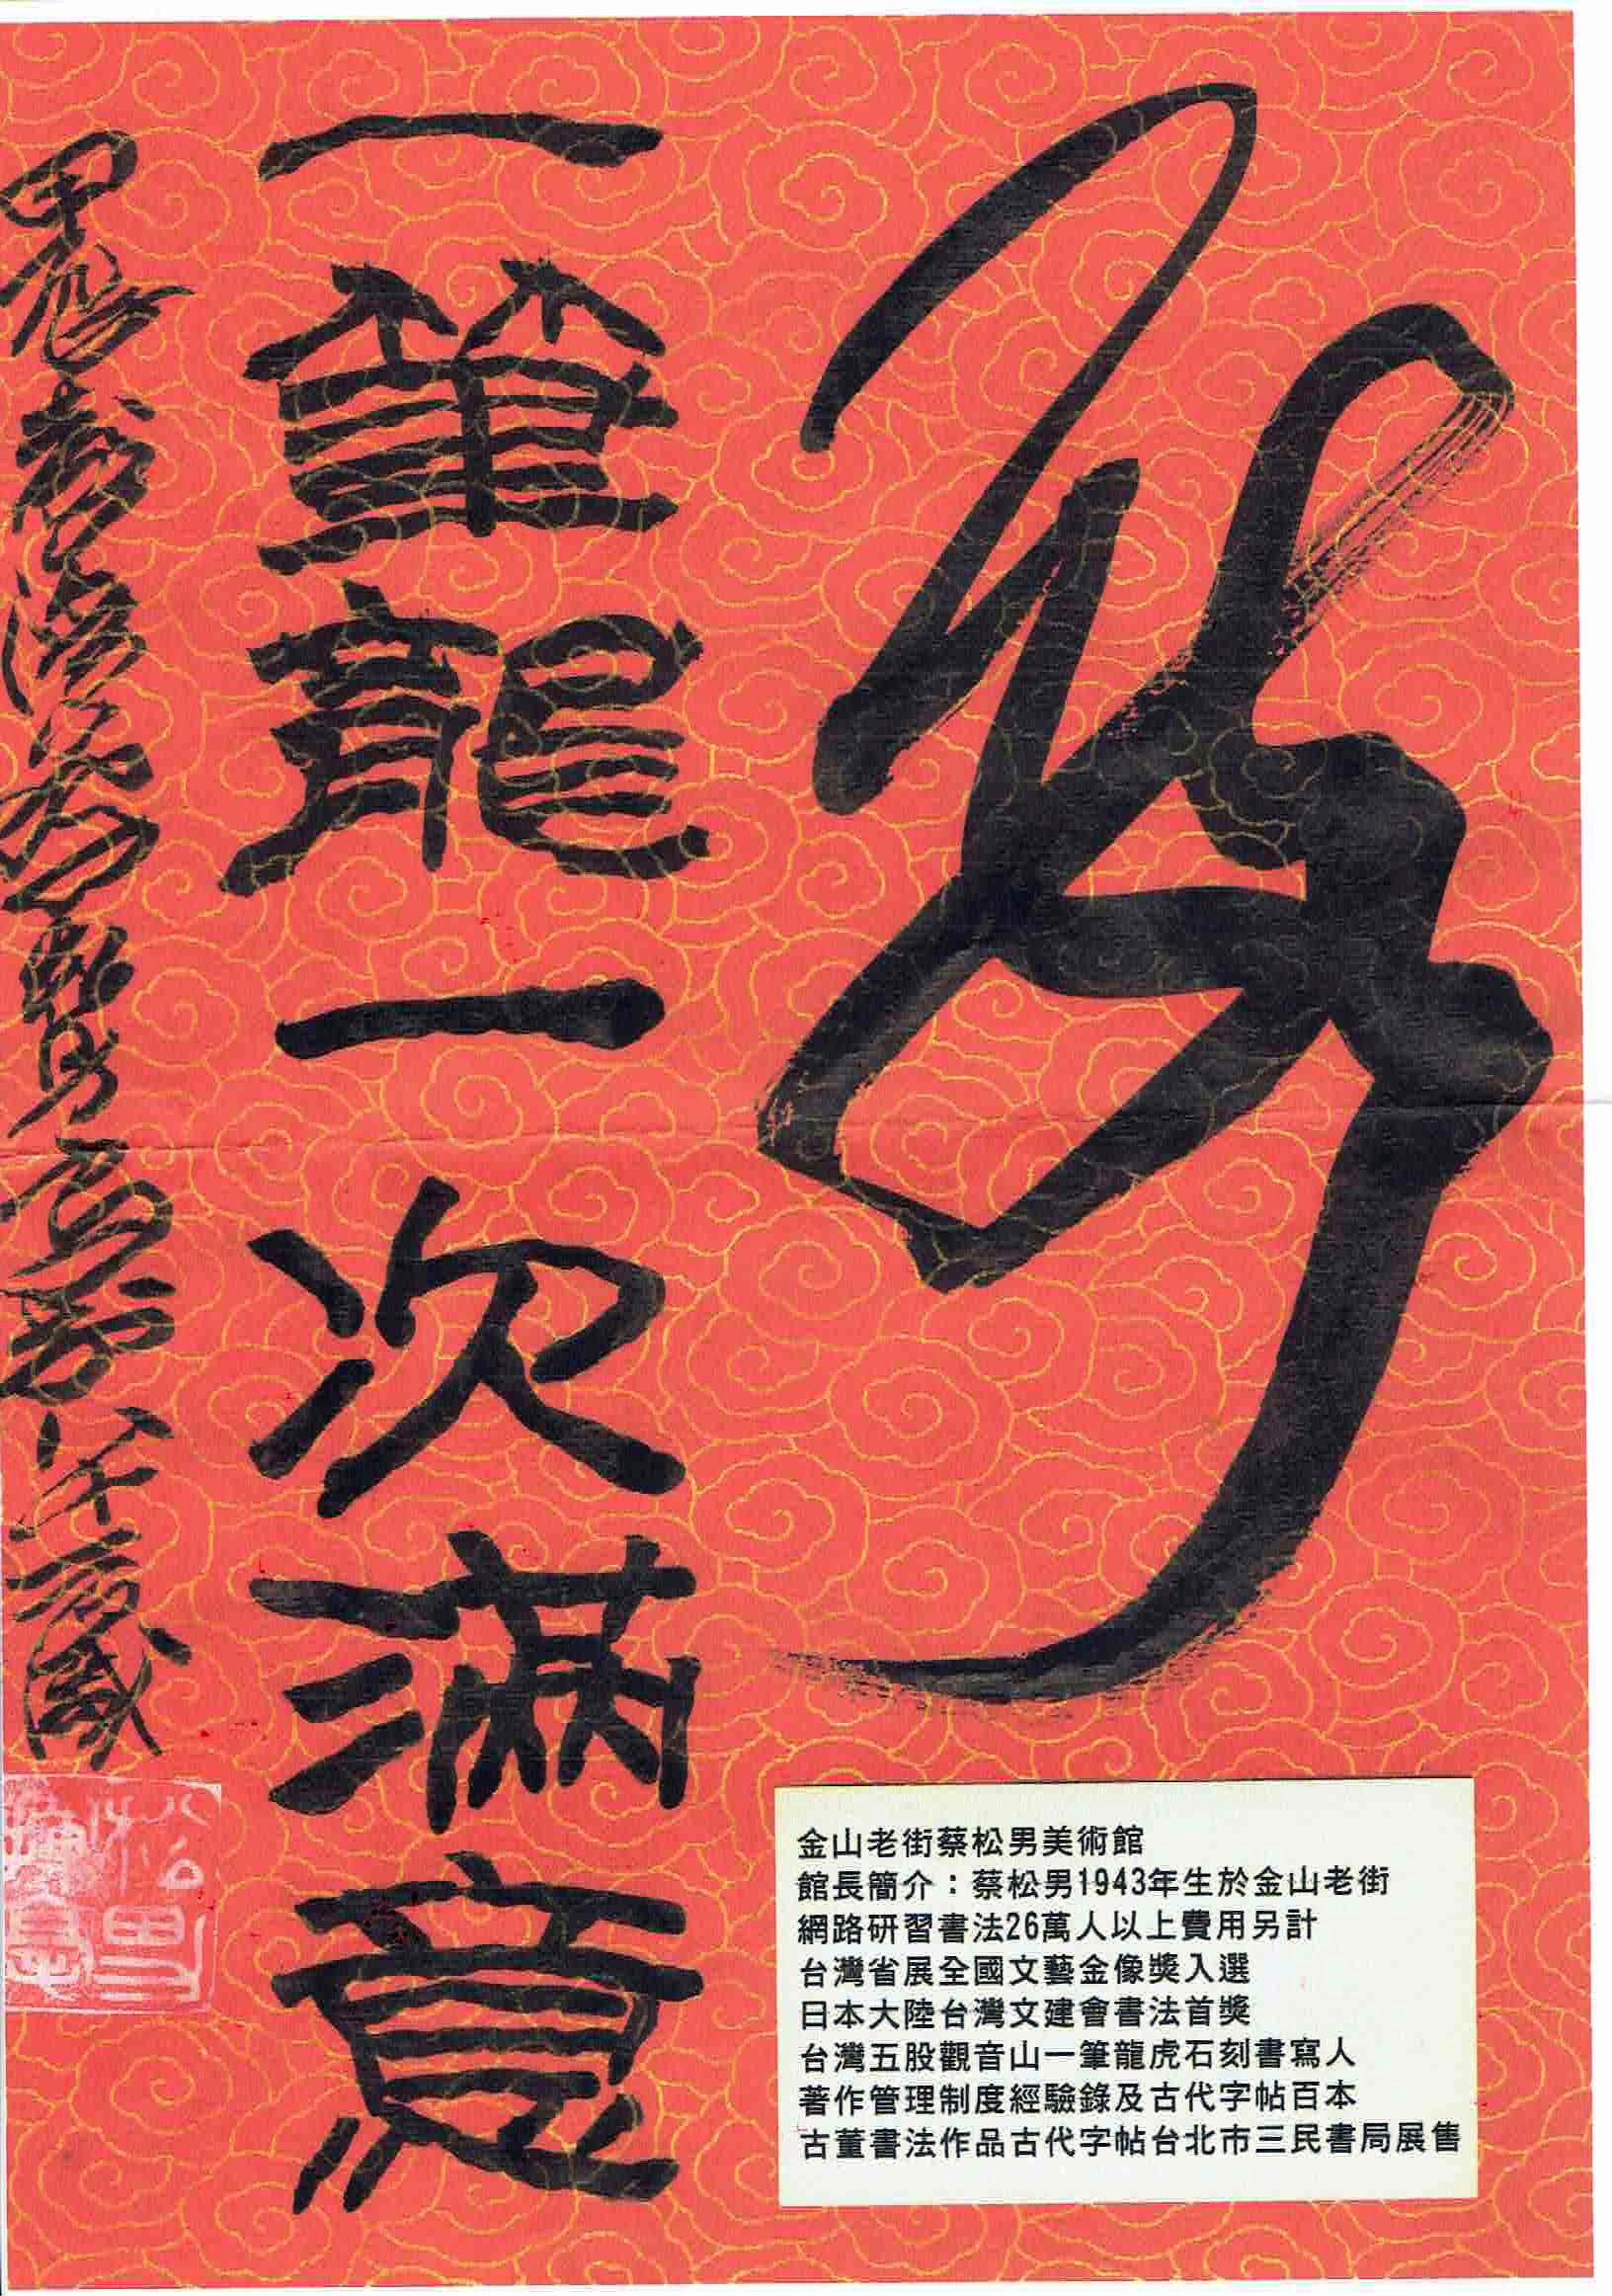 龍
一筆龍一次滿意
甲辰
金山老街蔡松男美術館
館長簡介：蔡松男1943年生於金山老街
網路研習書法26萬人以上費用另計
台灣省展全國文藝金像獎入選
日本大陸台灣文建會書法首獎
台灣五股觀音山一筆龍虎石刻書寫人
著作管理制度經驗錄及古代字帖百本
古董書法作品古代字帖台北市三民書局展售